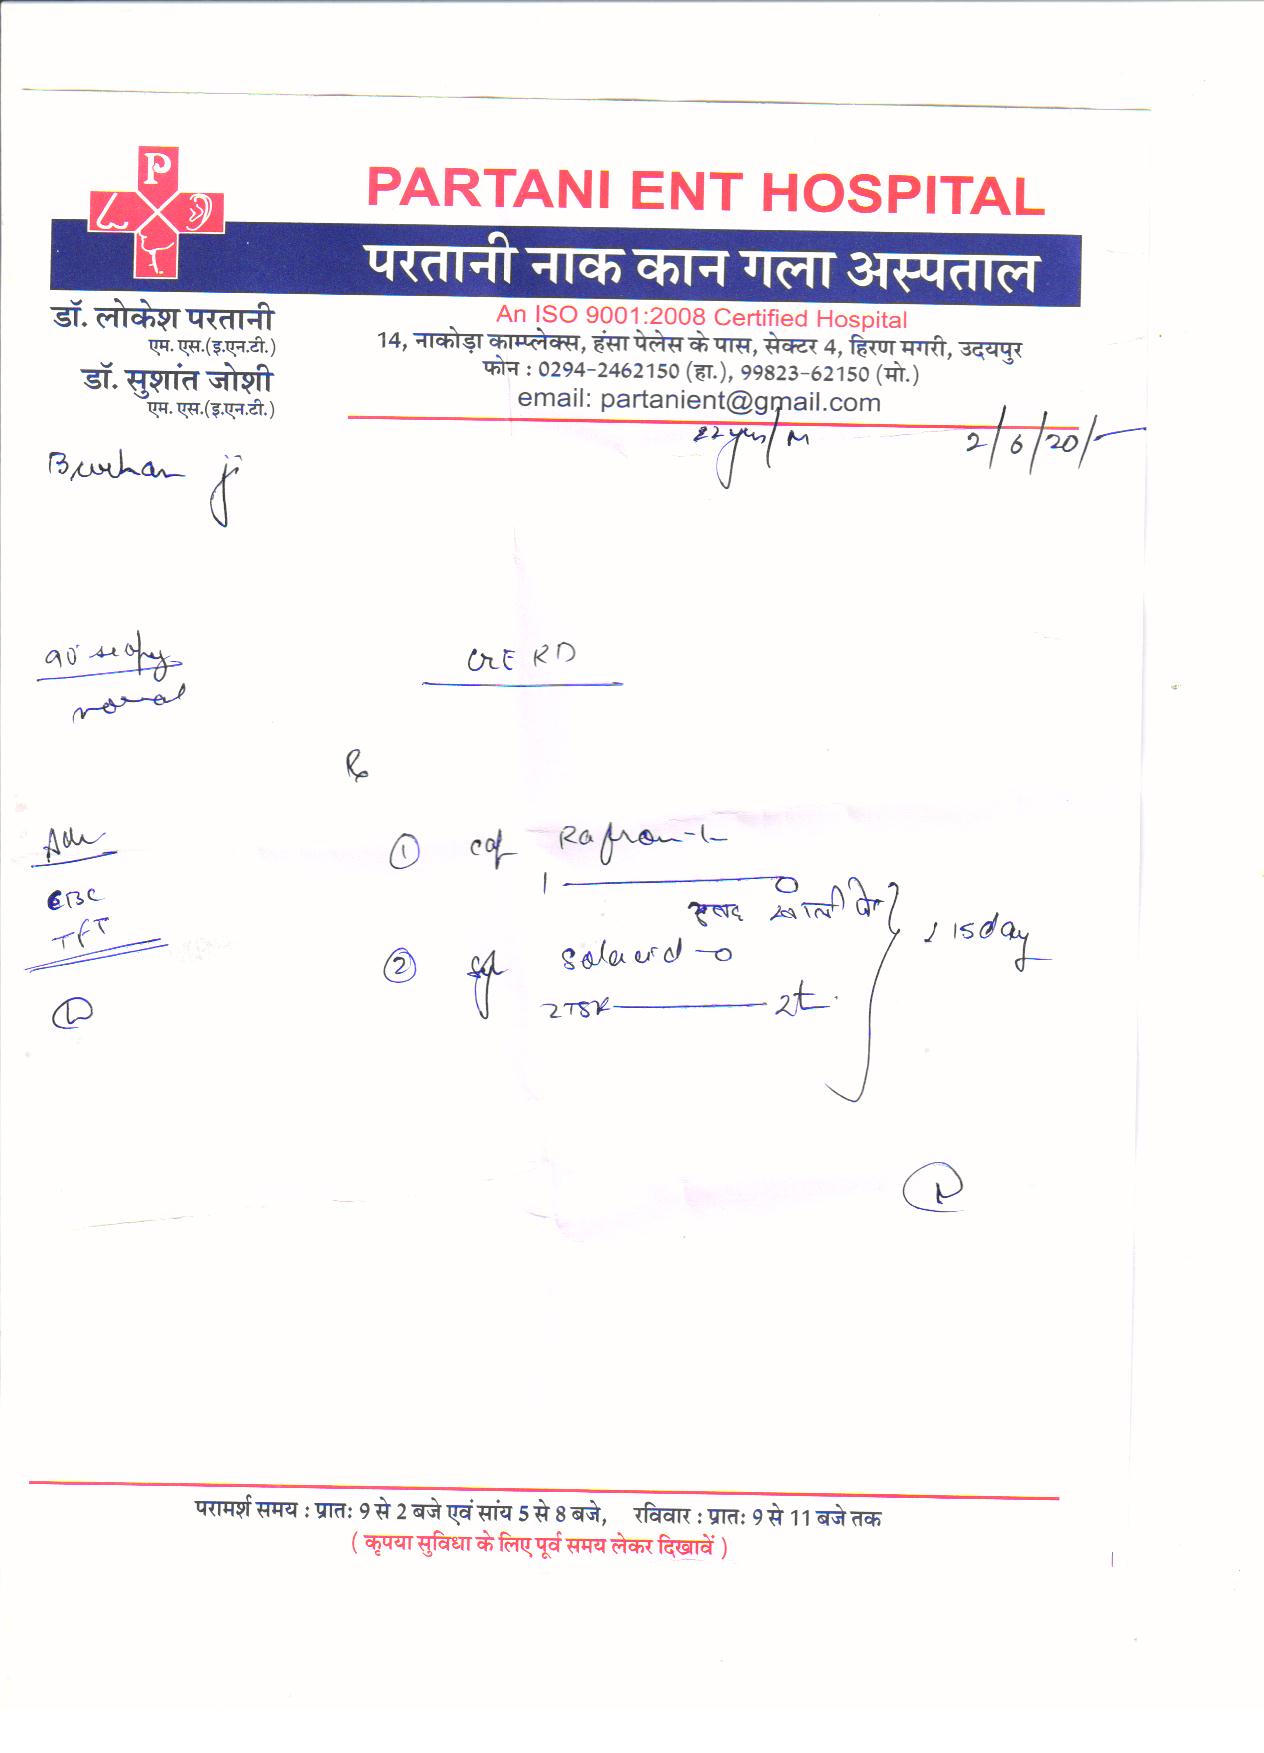 P
PARTANI ENT HOSPITAL
परतानी नाक कान गला अस्पताल
An ISO 9001:2008 Certified Hospital
डॉ. लोकेश परतानी
एम. एस.(इ.एन.टी.)
डॉ. सुशांत जोशी
एम. एस.(इ.एन.टी.)
14, नाकोड़ा काम्प्लेक्स, हंसा पेलेस के पास, सेक्टर 4, हिरण मगरी, उदयपुर
फोन : 0294-2462150 (हा.), 99823-62150 (मो.)
email: partanient@gmail.com
22 yrs/M 2/6/20/-
Burhan ji
90° scopy
normal
GERD
Rx
Adv
CBC
TFT
① cap
1 — 0
सुबह खाली पेट
② syp
2TSF — 2t
15 day
परामर्श समय : प्रातः 9 से 2 बजे एवं सांय 5 से 8 बजे, रविवार : प्रातः 9 से 11 बजे तक
( कृपया सुविधा के लिए पूर्व समय लेकर दिखावें )